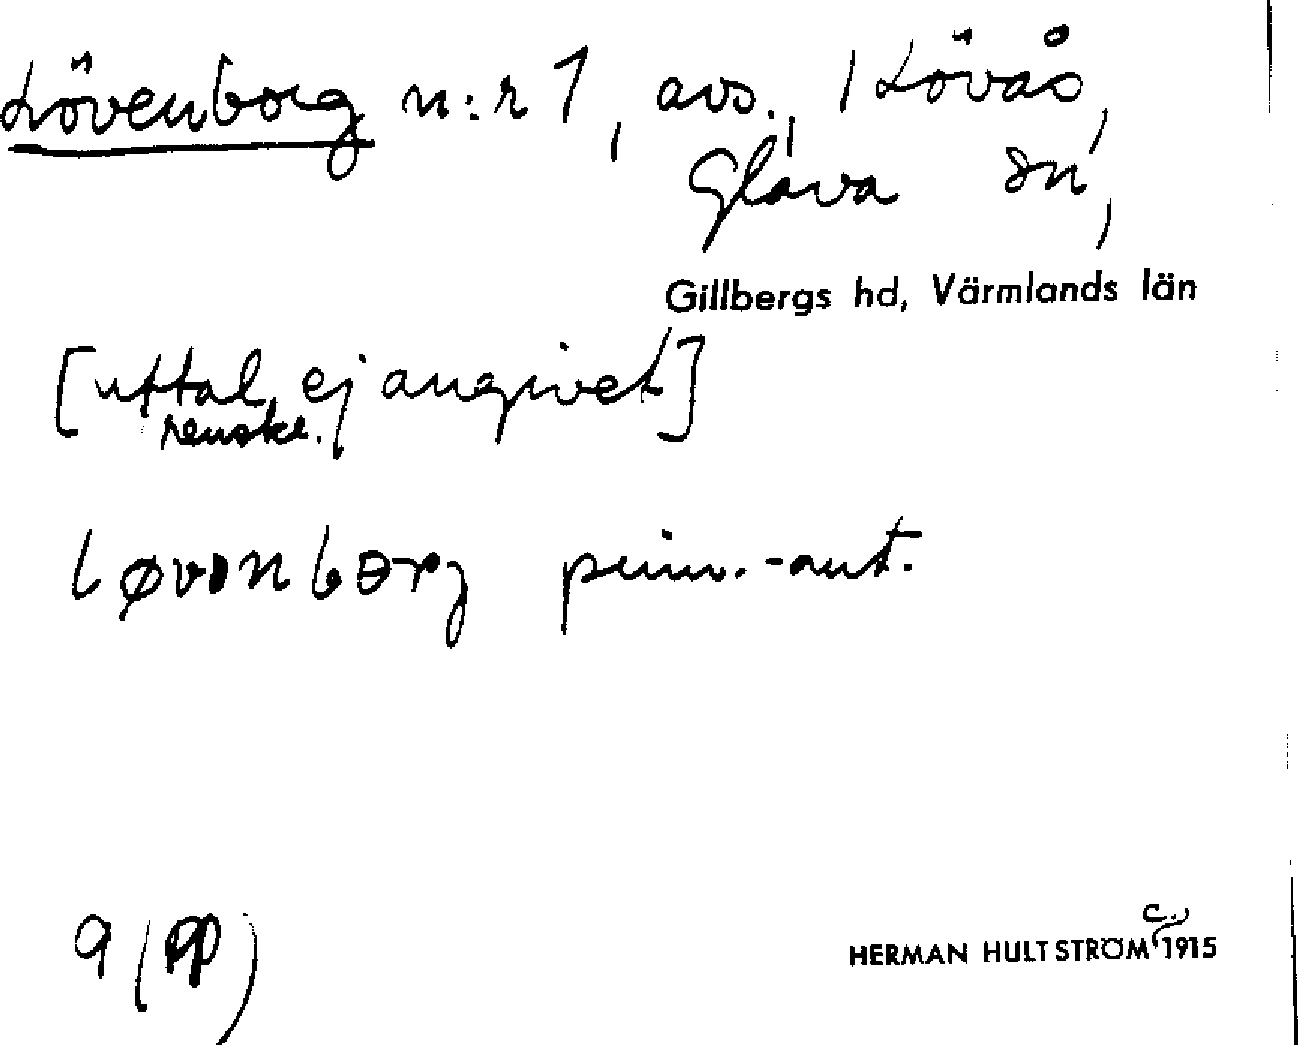 Lövenborg n:r 1, avs., 1 Lövås,
Glava sn,
Gillbergs hd, Värmlands län
[uttal ej angivet]
renskr.
løvenbørg prim.-ant.
9 (pp)
c.
HERMAN HULTSTRÖM 1915